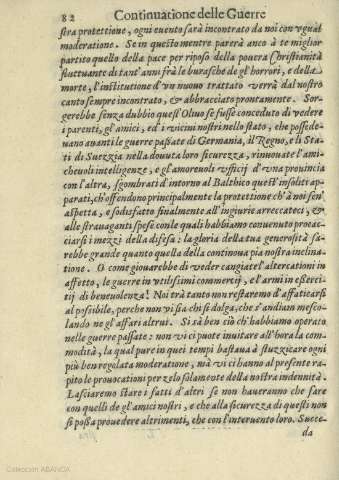 82 Continuatione delle Guerre
stra protettione, ogni euento sarà incontrato da noi con vgual
moderatione. Se in questo mentre parerà anco à te miglior
partito quello della pace per riposo della pouera Christianità
fluttuante di tant'anni frà le burasche de gl'horrori, e della
morte, l'institutione d'un nuouo trattato verrà dal nostro
canto sempre incontrato, & abbracciato prontamente. Sor-
gerebbe senza dubbio quest'Oliuo se fusse conceduto di vedere
i parenti, gl'amici, ed i vicini nostri nello stato, che possede-
uano auanti le guerre passate di Germania, il Regno, e li Sta-
ti di Suezzia nella douuta loro sicurezza, rinouate l'ami-
cheuoli intelligenze, e gl'amoreuoli vfficij d'vna prouincia
con l'altra, sgombrati d'intorno al Balthico quest'insoliti ap-
parati, ch'offendono principalmente la protettione ch'à noi s'en'
aspetta, e sodisfatto finalmente all'ingiurie arrecateci, &
alle strauaganti spese con le quali habbiamo conuenuto procac-
ciarsi mezzi della difesa: la gloria della tua generosità sa-
rebbe grande quanto quella della continoua pia nostra inclina-
tione. O come giouarebbe di veder cangiate l'altercationi in
affetto, le guerre in vtilissimi commercij, e l'armi in essercì-
tij di beneuolenza! Noi trà tanto non restaremo d'affaticarsi
al possibile, perche non vi sia chi si dolga, che s'andiam mesco-
lando ne gl'affari altrui. Si sà ben ciò ch'habbiamo operato
nelle guerre passate: non vi ci puote inuitare all'hora la com-
modità, la qual pure in quei tempi bastaua à stuzzicare ogni
più ben regolata moderatione, mà vi ci hanno al presente ra-
pito le prouocationi per zelo solamente della nostra indennità.
Lasciaremo stare i fatti d'altri se non haueranno che fare
con quelli de gl'amici nostri, e che alla sicurezza di questi non
si possa prouedere altrimenti, che con l'interuento loro. Succe-
da
Colección ABANCA